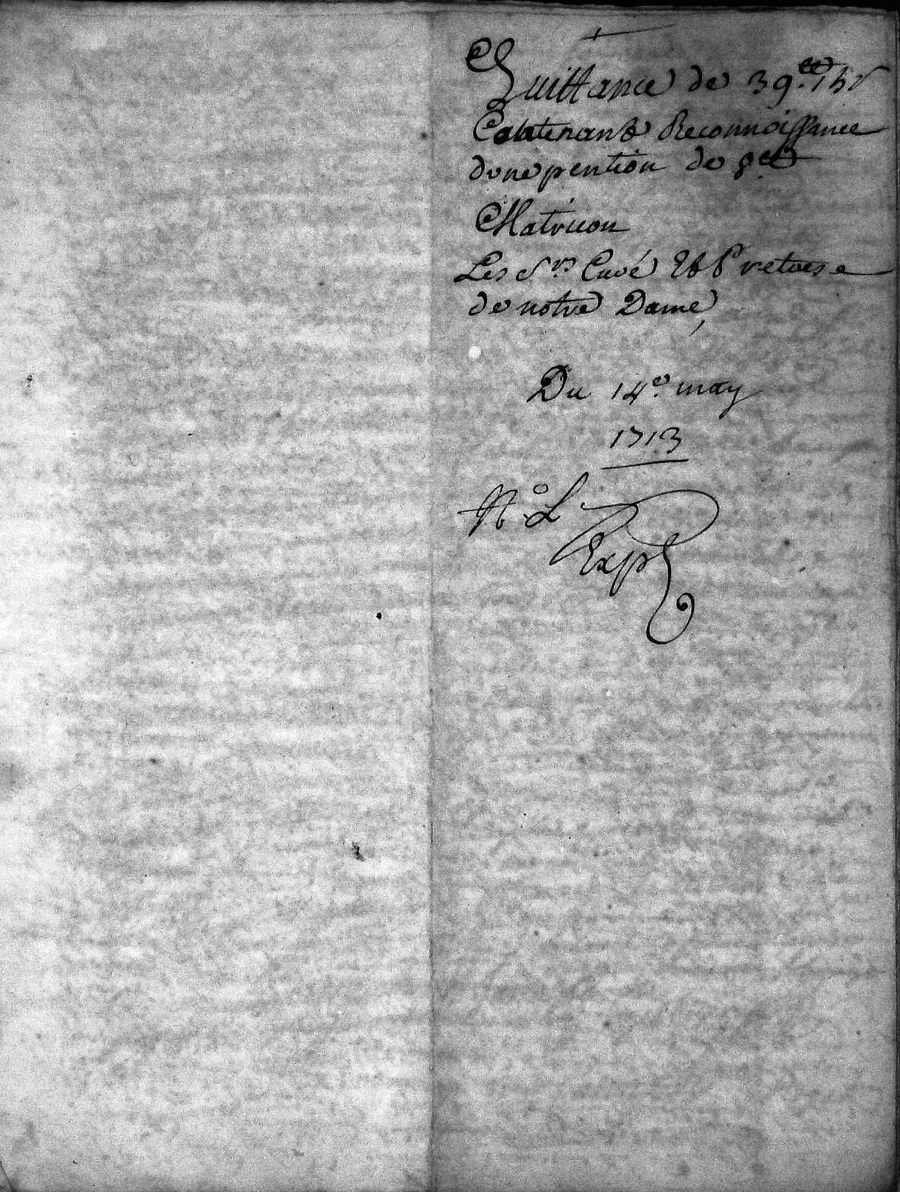 Quittance de 39.tt 15 s
Contenant Reconnoissance
d'une pention de 8tt
Matricon
Les Srs Curé Et Pretres
de notre Dame,
Du 14e. may
1713
No. L
Exp